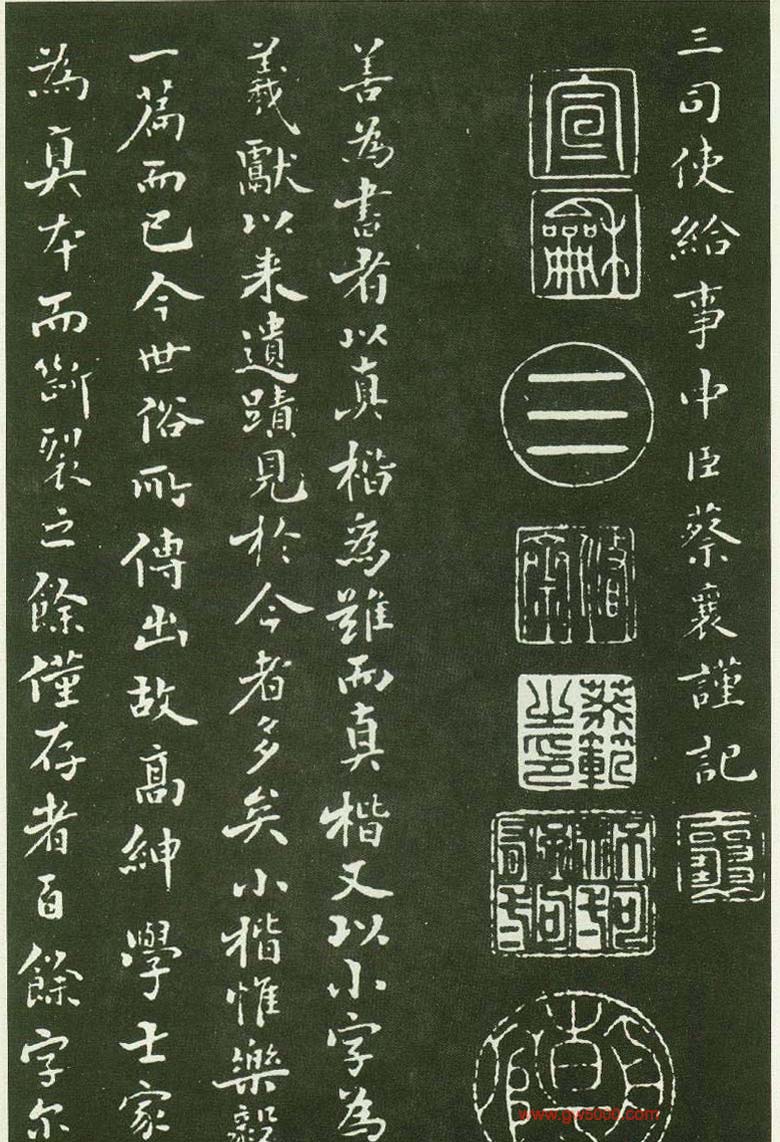 三司使給事中臣蔡襄謹記
宣
龢
三
善為書者以真楷為難而真楷又以小字為
羲獻以来遺蹟見於今者多矣小楷惟樂毅
一篇而已今世俗所傳出故高紳學士家
為真本而斷裂之餘僅存者百餘字尔
www.gw5000.com